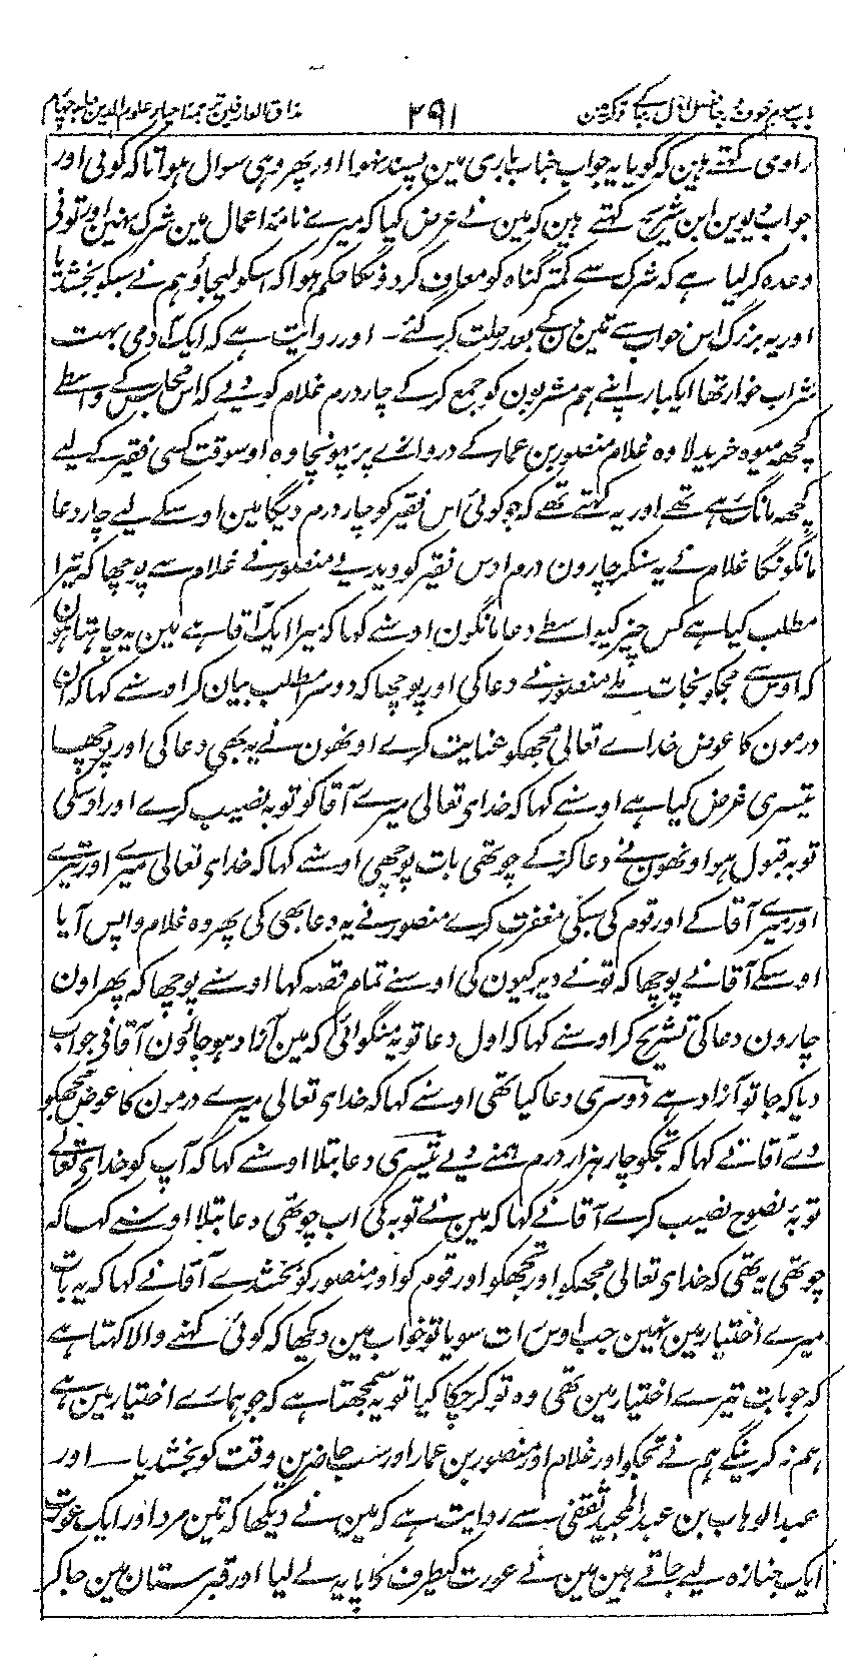 باب سوم خوف و رجا فصل اول رجا کے ذکر مین
۲۹۱
مذاق العارفین ترجمہ احیاء علوم الدین جلد چہارم
راوی کہتے ہین کہ گویا یہ جواب جناب باری مین پسند نہوا اور پھر وہی سوال ہوا تاکہ کوئی اور
جواب دیوین ابن شریح کہتے ہین کہ مین نے عرض کیا کہ میرے نامۂ اعمال مین شرک نہین اور تونے
وعدہ کرلیا ہے کہ شرک سے کمتر گناہ کو معاف کردونگا حکم ہوا کہ اسکو لیجاؤ ہم نے سبکو بخشدیا
اور یہ بزرگ اس خواب سے تین دن کے بعد رحلت کرگئے۔ اور روایت ہے کہ ایک آدمی بہت
شراب خوار تھا ایکبار اپنے ہم مشربون کو جمع کرکے چار درم غلام کو دیے کہ اس مجلس کے واسطے
کچھ میوہ خرید لا وہ غلام منصور بن عمار کے دروازے پر پہونچا وہ اوسوقت کسی فقیر کے لیے
کچھ مانگ رہے تھے اور یہ کہتے تھے کہ جو کوئی اس فقیر کو چار درم دیگا مین اوسکے لیے چار دعا
مانگونگا غلام نے یہ سنکر چارون درم اوس فقیر کو دیدیے منصور نے غلام سے پوچھا کہ تیرا
مطلب کیا ہے کس چیز کیواسطے دعا مانگون اوسنے کہا کہ میرا ایک آقا ہے مین یہ چاہتا ہون
کہ اوس سے مجکو نجات ملے منصور نے دعا کی اور پوچھا کہ دوسرا مطلب بیان کر اوسنے کہا کہ ان
درمون کا عوض خداے تعالی مجھکو عنایت کرے اونھون نے یہ بھی دعا کی اور پوچھا
تیسری غرض کیا ہے اوسنے کہا کہ خدای تعالی میرے آقا کو توبہ نصیب کرے اور اوسکی
توبہ قبول ہو اونھون نے دعا کرکے چوتھی بات پوچھی اوسنے کہا کہ خدای تعالی میرے اور تیرے
اور میرے آقا کے اور قوم کی سبکی مغفرت کرے منصور نے یہ دعا بھی کی پھر وہ غلام واپس آیا
اوسکے آقا نے پوچھا کہ تونے دیر کیون کی اوسنے تمام قصہ کہا اوسنے پوچھا کہ پھر اون
چارون دعا کی تشریح کر اوسنے کہا کہ اول دعا تو یہ منگوائی کہ مین آزاد ہوجاؤن آقا نے جواب
دیا کہ جا تو آزاد ہے دوسری دعا کیا تھی اوسنے کہا کہ خدای تعالی میرے درمون کا عوض مجھکو
دے آقا نے کہا کہ تجکو چار ہزار درم ہمنے دیے تیسری دعا بتلا اوسنے کہا کہ آپ کو خدای تعالے
توبۂ نصوح نصیب کرے آقا نے کہا کہ مین نے توبہ کی اب چوتھی دعا بتلا اوسنے کہا کہ
چوتھی یہ تھی کہ خدای تعالی مجھکو اور تجھکو اور قوم کو اور منصور کو بخشدے آقا نے کہا کہ یہ بات
میرے اختیار مین نہین جب اوس رات سویا تو خواب مین دیکھا کہ کوئی کہنے والا کہتا ہے
کہ جو بات تیرے اختیار مین تھی وہ تو کرچکا کیا تو یہ سمجھتا ہے کہ جو ہمارے اختیار مین ہے
ہم نہ کرینگے ہم نے تجکو اور غلام اور منصور بن عمار اور سب حاضرین وقت کو بخشدیا۔ اور
عبدالوہاب بن عبدالمجید ثقفی سے روایت ہے کہ مین نے دیکھا کہ تین مرد اور ایک عورت
ایک جنازہ لیے جاتے ہین مین نے عورت کیطرف کا پایہ لے لیا اور قبرستان مین جاکر